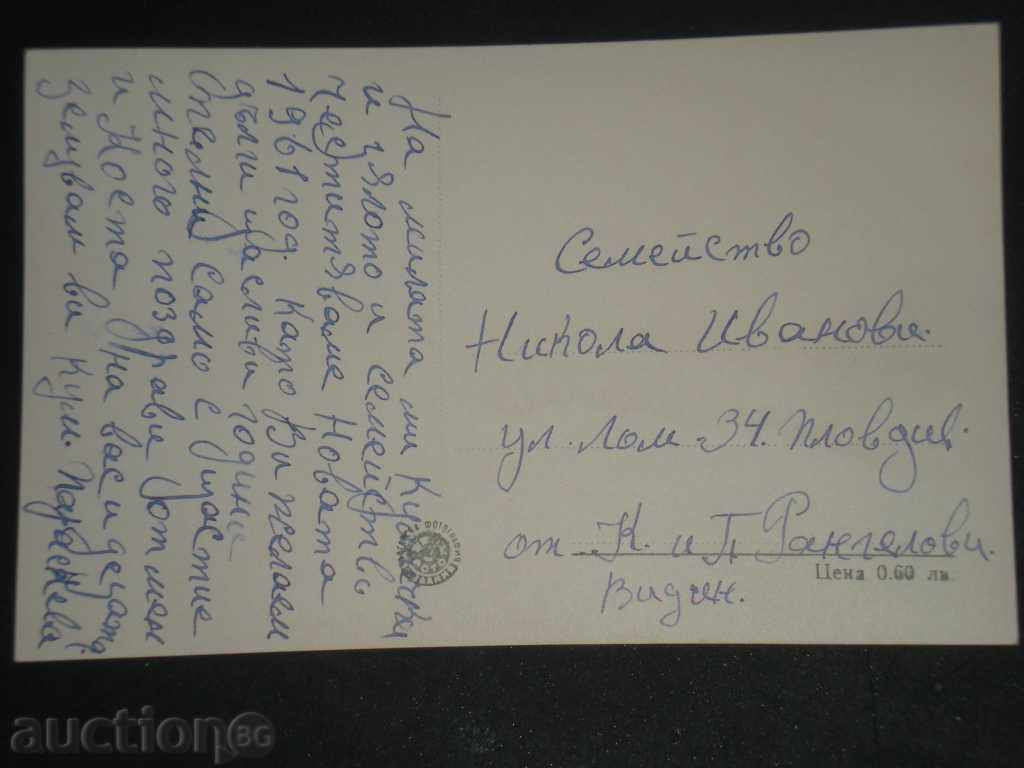 На милата ми Кумичка
и цялото и семейство
честитяваме Новата
1961 год. Като Ви желаем
дълги щасливи години
Стелни само с щастие
много поздрави от мен
и Коста на вас и децата
целувам ви Кума
Семейство
Никола Иванови.
ул. Лом 34. Пловдив.
от К. и П. Рангялови.
Видин.
Цена 0.60 лв.
auction BG